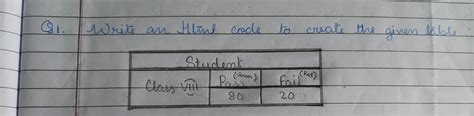 Q1. Write an Html code to create the given table.
Student
Class VIII Pass (Green) Fail (Red)
80 20